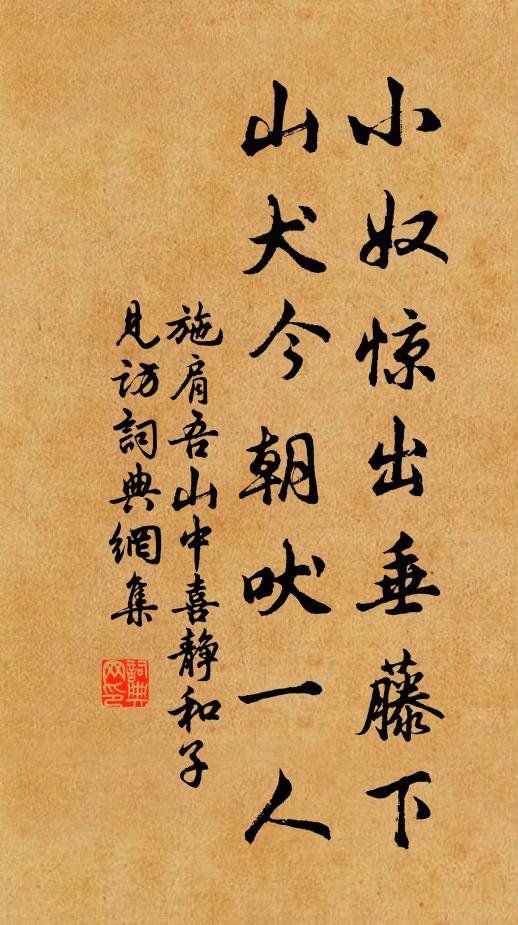 小奴惊出垂藤下
山犬今朝吠一人
施肩吾山中喜静和子
见访詞典網集
詞典
网印